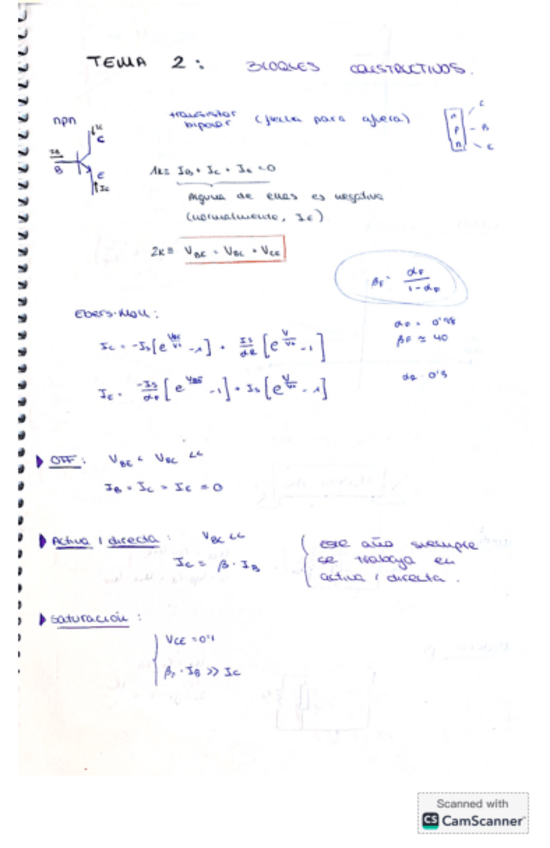 TEMA 2: BLOQUES CONSTRUCTIVOS.
npn
transistor bipolar (flecha para afuera)
C
B
E
n
p
n
C
B
E
1k ≡ IB + IC + IE = 0
Alguna de ellas es negativa
(normalmente, IE)
2k ≡
βF = αF / 1 - αF
Ebers-Moll:
αF = 0'98
βF ≃ 40
αR = 0'5
OFF: VBE < VBC <<
IB = IC = IE = 0
Activa / directa: VBC <<
IC = β · IB
este año siempre
se trabaja en
activa / directa.
Saturación:
VCE = 0'1
βF · IB >> IC
Scanned with
CS CamScanner